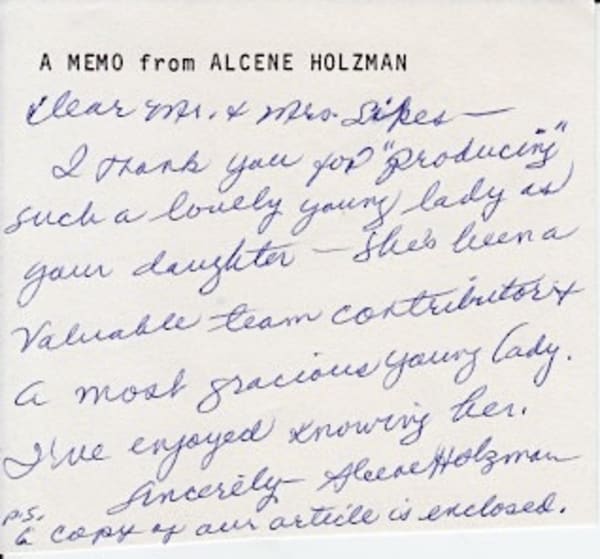 A MEMO from ALCENE HOLZMAN
Dear Mr. & Mrs. Sikes—
I thank you for "producing"
such a lovely young lady as
your daughter — She's been a
valuable team contributor &
a most gracious young lady.
I've enjoyed knowing her.
Sincerely Alcene Holzman
P.S.
a copy of our article is enclosed.